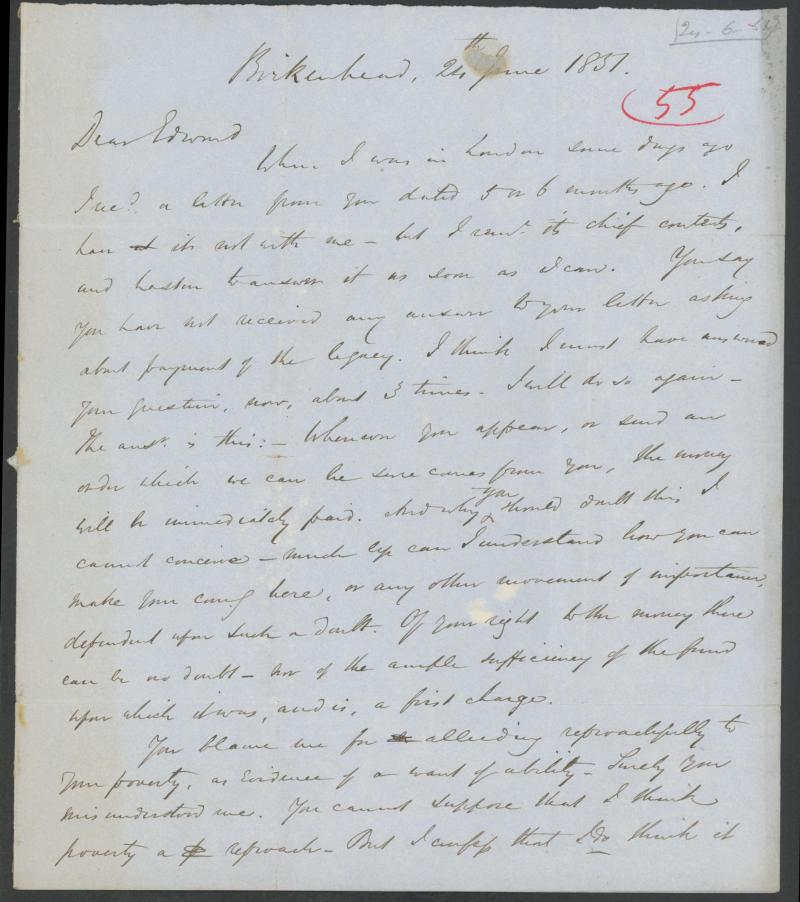 24-6-51
Birkenhead, 24th June 1851.
55
Dear Edward
When I was in London some days ago
I recd. a letter from you dated 5 or 6 months ago. I
have it not with me – but I remr. its chief contents,
and hasten to answer it as soon as I can. You say
you have not received any answer to your letter asking
about payment of the legacy. I think I must have answered
your question, now, about 3 times. I will do so again –
The ansr. is this: – Whenever you appear, or send an
order which we can be sure comes from you, the money
will be immediately paid. And why you should doubt this I
cannot conceive – much less can I understand how you can
make your coming here, or any other movement of importance,
dependent upon such a doubt. Of your right to the money there
can be no doubt – nor of the ample sufficiency of the fund
upon which it was, and is, a first charge.
You blame me for alluding reproachfully to
your poverty, as evidence of a want of ability – Surely you
misunderstood me. You cannot suppose that I think
poverty a reproach – But I confess that I do think it